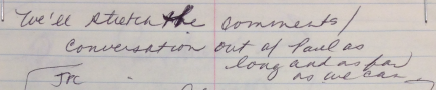 We'll stretch the comments/
conversation out of Paul as
long and as far
as we can